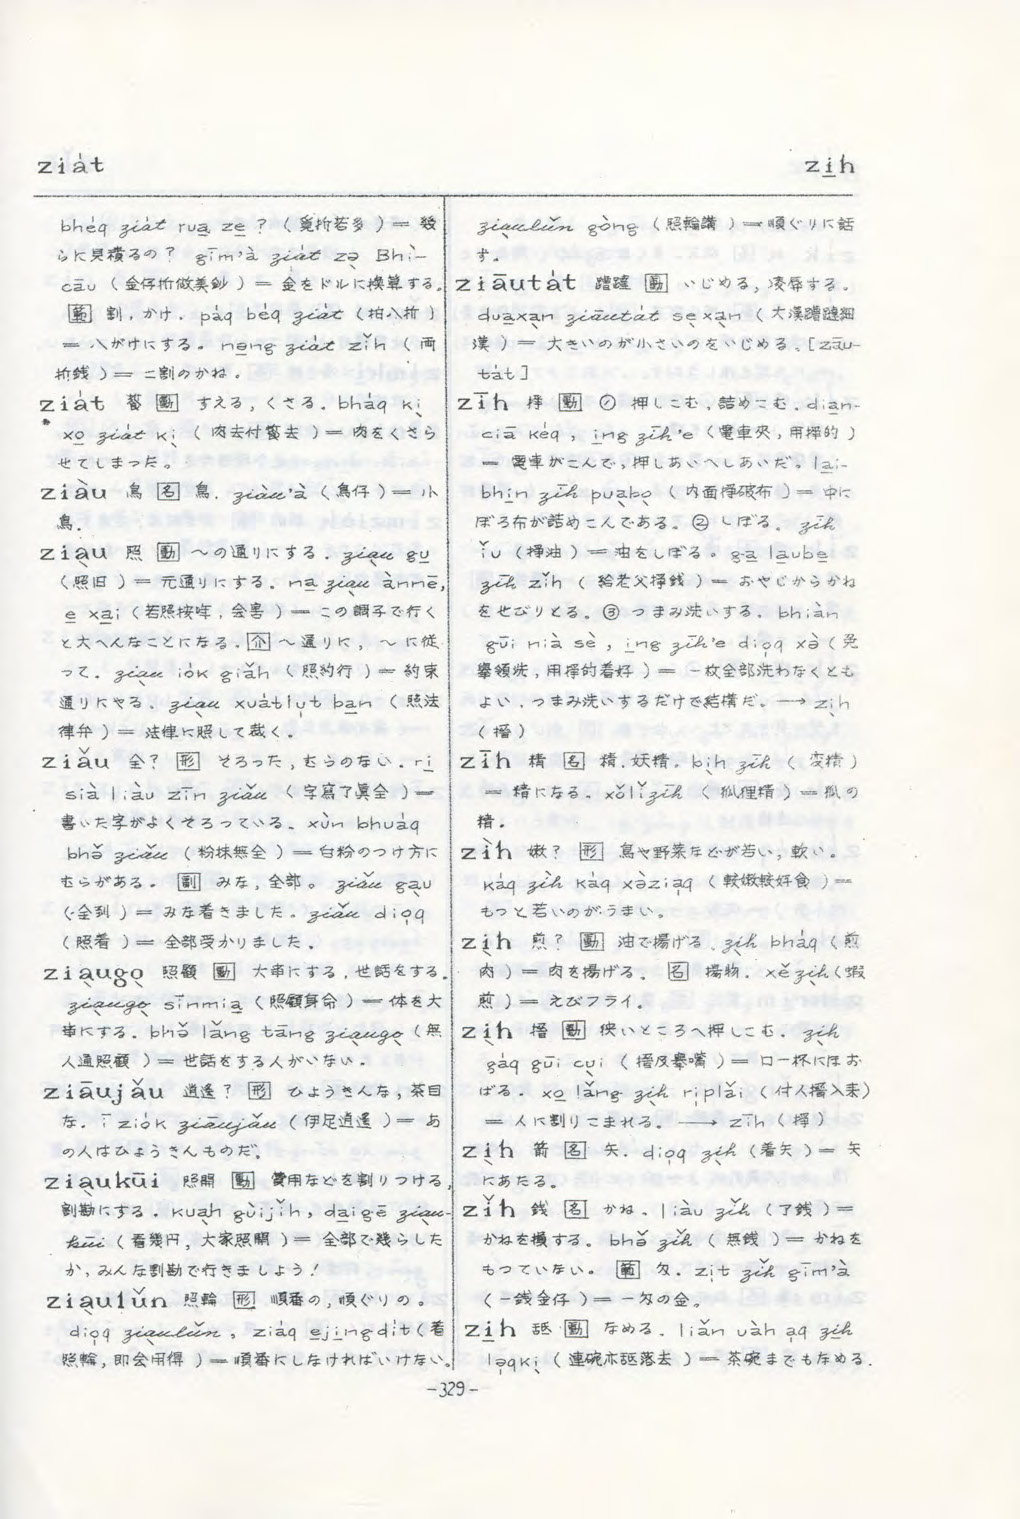 ziȧt
zi̱h
bhėq ziȧt rua̱ ze̱ ? (覓折若多) = 幾
らに見積るの? gīm'à ziȧt zə̱ Bhì-
cāu (金仔折做美鈔) = 金をドルに換算する。
範 割,かけ. pȧq bėq ziȧt (拍八折)
= 八がけにする。 nəng ziȧt zǐh (両
折銭) = 二割のかね。
ziȧt 動 すえる,くさる. bhȧq ki̖
xo̱ ziȧt ki̖ (肉去付去) = 肉をくさら
せてしまった。
ziàu 鳥 名 鳥. ziàu'à (鳥仔) = 小
鳥.
zia̖u 照 動 ～の通りにする. zia̖u gu̱
(照旧) = 元通りにする. na̱ zia̖u ànnē,
e̱ xa̱i (若照按哖,会害) = この調子で行く
と大へんなことになる. 介 ～通りに, ～に従
って. zia̖u iȯk giǎh (照約行) = 約束
通りにやる. zia̖u xuȧtlu̍t ba̱n (照法
律弁) = 法律に照して裁く。
ziǎu 全? 形 そろった,むらのない. ri̱
sià liàu zīn ziǎu (字寫了眞全) =
書いた字がよくそろっている. xùn bhuȧq
bhə̌ ziǎu (粉抹無全) = 白粉のつけ方に
むらがある. 副 みな,全部。 ziǎu ga̖u
(全到) = みな着きました. ziǎu dio̍q
(照着) = 全部受かりました.
zia̖ugo̖ 照顧 動 大事にする,世話をする.
zia̖ugo̖ sīnmia̱ (照顧身命) = 体を大
事にする. bhə̌ lǎng tāng zia̖ugo̖ (無
人通照顧) = 世話をする人がいない.
ziāujǎu 逍遙? 形 ひょうきんな,茶目
な. ī ziȯk ziāujǎu (伊足逍遙) = あ
の人はひょうきんものだ。
zia̖ukūi 照開 動 費用などを割りつける,
割勘にする. kua̖h gùijǐh, da̱igē zia̖u-
kūi (看幾円,大家照開) = 全部で幾らした
か,みんな割勘で行きましょう!
zia̖ulǔn 照輪 形 順番の,順ぐりの。
dio̍q zia̖ulǔn, ziȧq e̱ji̱ngdi̍t (着
照輪,即会用得) = 順番にしなければいけない。
zia̖ulǔn gòng (照輪講) = 順ぐりに話
す。
ziāutȧt 蹧躂 動 いじめる,凌辱する。
dua̱xa̖n ziāutȧt se̖xa̖n (大漢蹧躂細
漢) = 大きいのが小さいのをいじめる.[zāu-
tȧt]
zīh 㨃 動 ① 押しこむ,詰めこむ. dia̱n-
ciā kėq, i̱ng zīh'e (電車夾,用的)
= 電車がこんで,押しあいへしあいだ。 la̱i-
bhi̱n zīh pua̖bo̖ (内面破布) = 中に
ぼろ布が詰めこんである。 ② しぼる. zīh
ǐu (油) = 油をしぼる。 ga̱ la̱ube̱
zīh zǐh (給老父銭) = おやじからかね
をせびりとる。 ③ つまみ洗いする. bhiàn
gūi nià sè, i̱ng zīh'e dio̍q xà (免
擧領洗,用的着好) = 一枚全部洗わなくとも
よい.つまみ洗いするだけで結構だ. → zi̖h
(搢)
zīh 精 名 精.妖精. bi̖h zīh (変精)
= 精になる. xǒlǐzīh (狐狸精) = 狐の
精.
zìh 嫩? 形 鳥や野菜などが若い,軟い。
kȧq zìh kȧq xəziȧq (較嫩較好食) =
もっと若いのがうまい。
zi̖h 煎? 動 油で揚げる. zi̖h bhȧq (煎
肉) = 肉を揚げる. 名 揚物. xě zi̖h (蝦
煎) = えびフライ.
zi̖h 搢 動 狭いところへ押しこむ. zi̖h
gȧq gūi cu̖i (搢及擧嘴) = 口一杯にほお
ばる. xo̱ lǎng zi̖h ri̍plǎi (付人搢入来)
= 人に割りこまれる. → zīh ()
zi̖h 箭 名 矢. dio̍q zi̖h (着矢) = 矢
にあたる。
zǐh 銭 名 かね. liàu zǐh (了銭) =
かねを損する. bhə̌ zǐh (無銭) = かねを
もっていない。 範 匁. zi̍t zǐh gīm'à
(一銭金仔) = 一匁の金。
zi̱h 舐 動 なめる. liǎn uàh a̍q zi̱h
lə̍qki̖ (連碗亦舐落去) = 茶碗までもなめる.
-329-